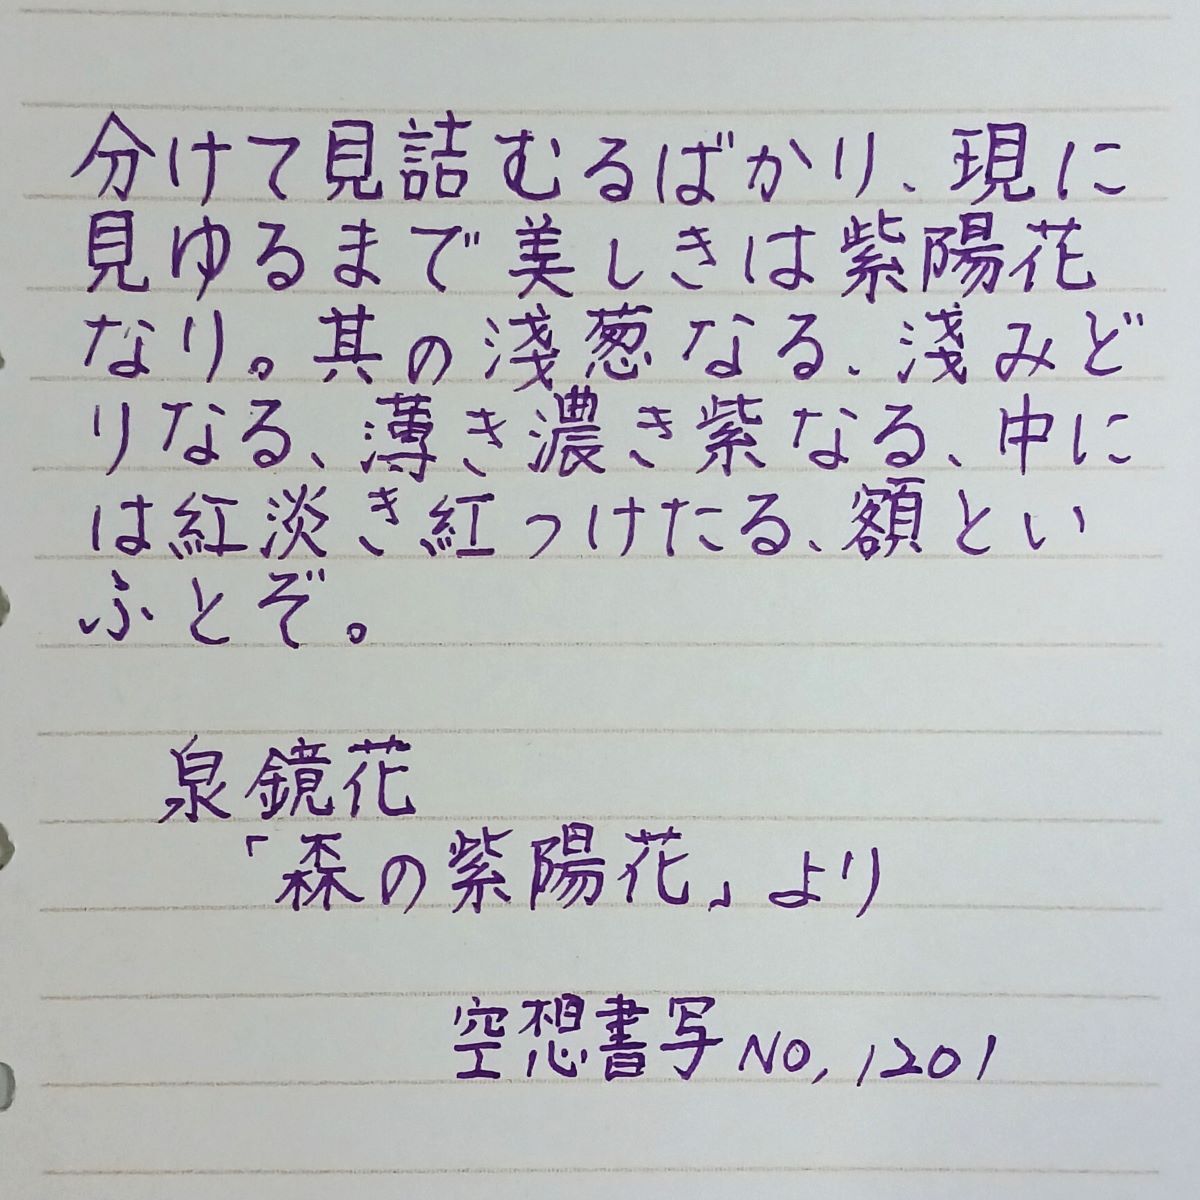 分けて見詰むるばかり、現に
見ゆるまで美しきは紫陽花
なり。其の淺葱なる、淺みど
りなる、薄き濃き紫なる、中に
は紅淡き紅つけたる、額とい
ふとぞ。
泉鏡花
「森の紫陽花」より
空想書写NO,1201